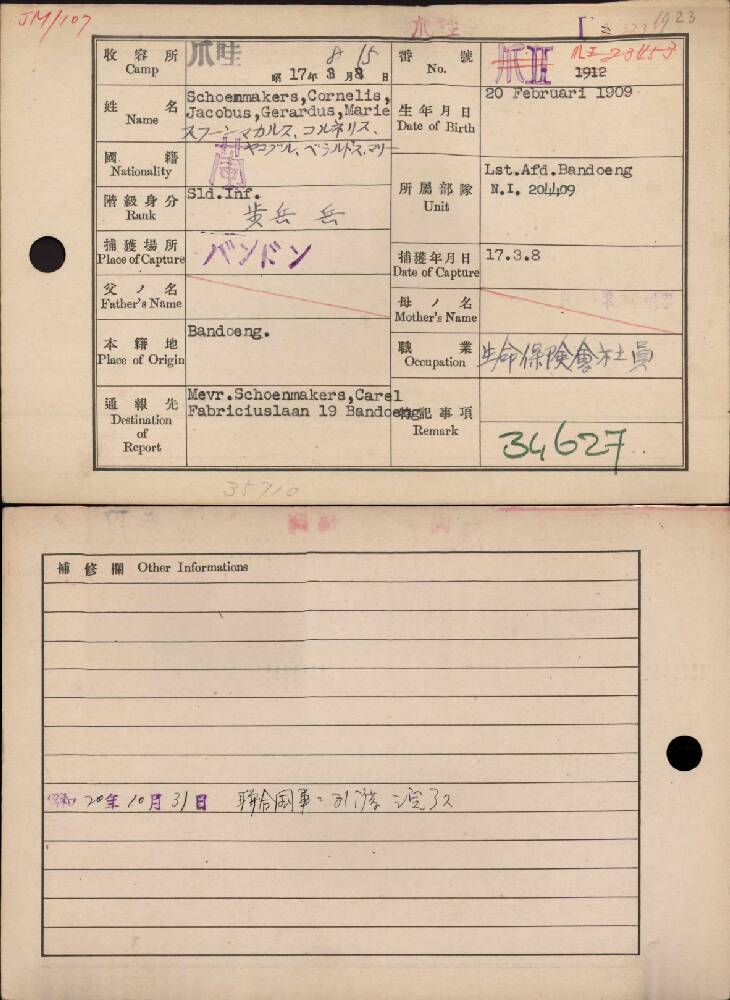 JM/107
爪哇
1923
收容所
Camp
爪哇
8 15
昭17年3月8日
番號
No.
爪哇
1912
姓名
Name
Schoenmakers,Cornelis,
Jacobus,Gerardus,Marie
スフーンマカルス、コルネリス、
ヤコブル、ベラルドス、マリー
生年月日
Date of Birth
20 Februari 1909
國籍
Nationality
蘭
階級身分
Rank
Sld.Inf.
所屬部隊
Unit
Lst.Afd.Bandoeng
N.I. 204409
捕獲場所
Place of Capture
バンドン
捕獲年月日
Date of Capture
17.3.8
父ノ名
Father's Name
母ノ名
Mother's Name
本籍地
Place of Origin
Bandoeng.
職業
Occupation
生命保険會社員
通報先
Destination
of
Report
Mevr.Schoenmakers,Carel
Fabriciuslaan 19 Bandoeng
特記事項
Remark
34627
35710
補修欄 Other Informations
昭和20年10月31日